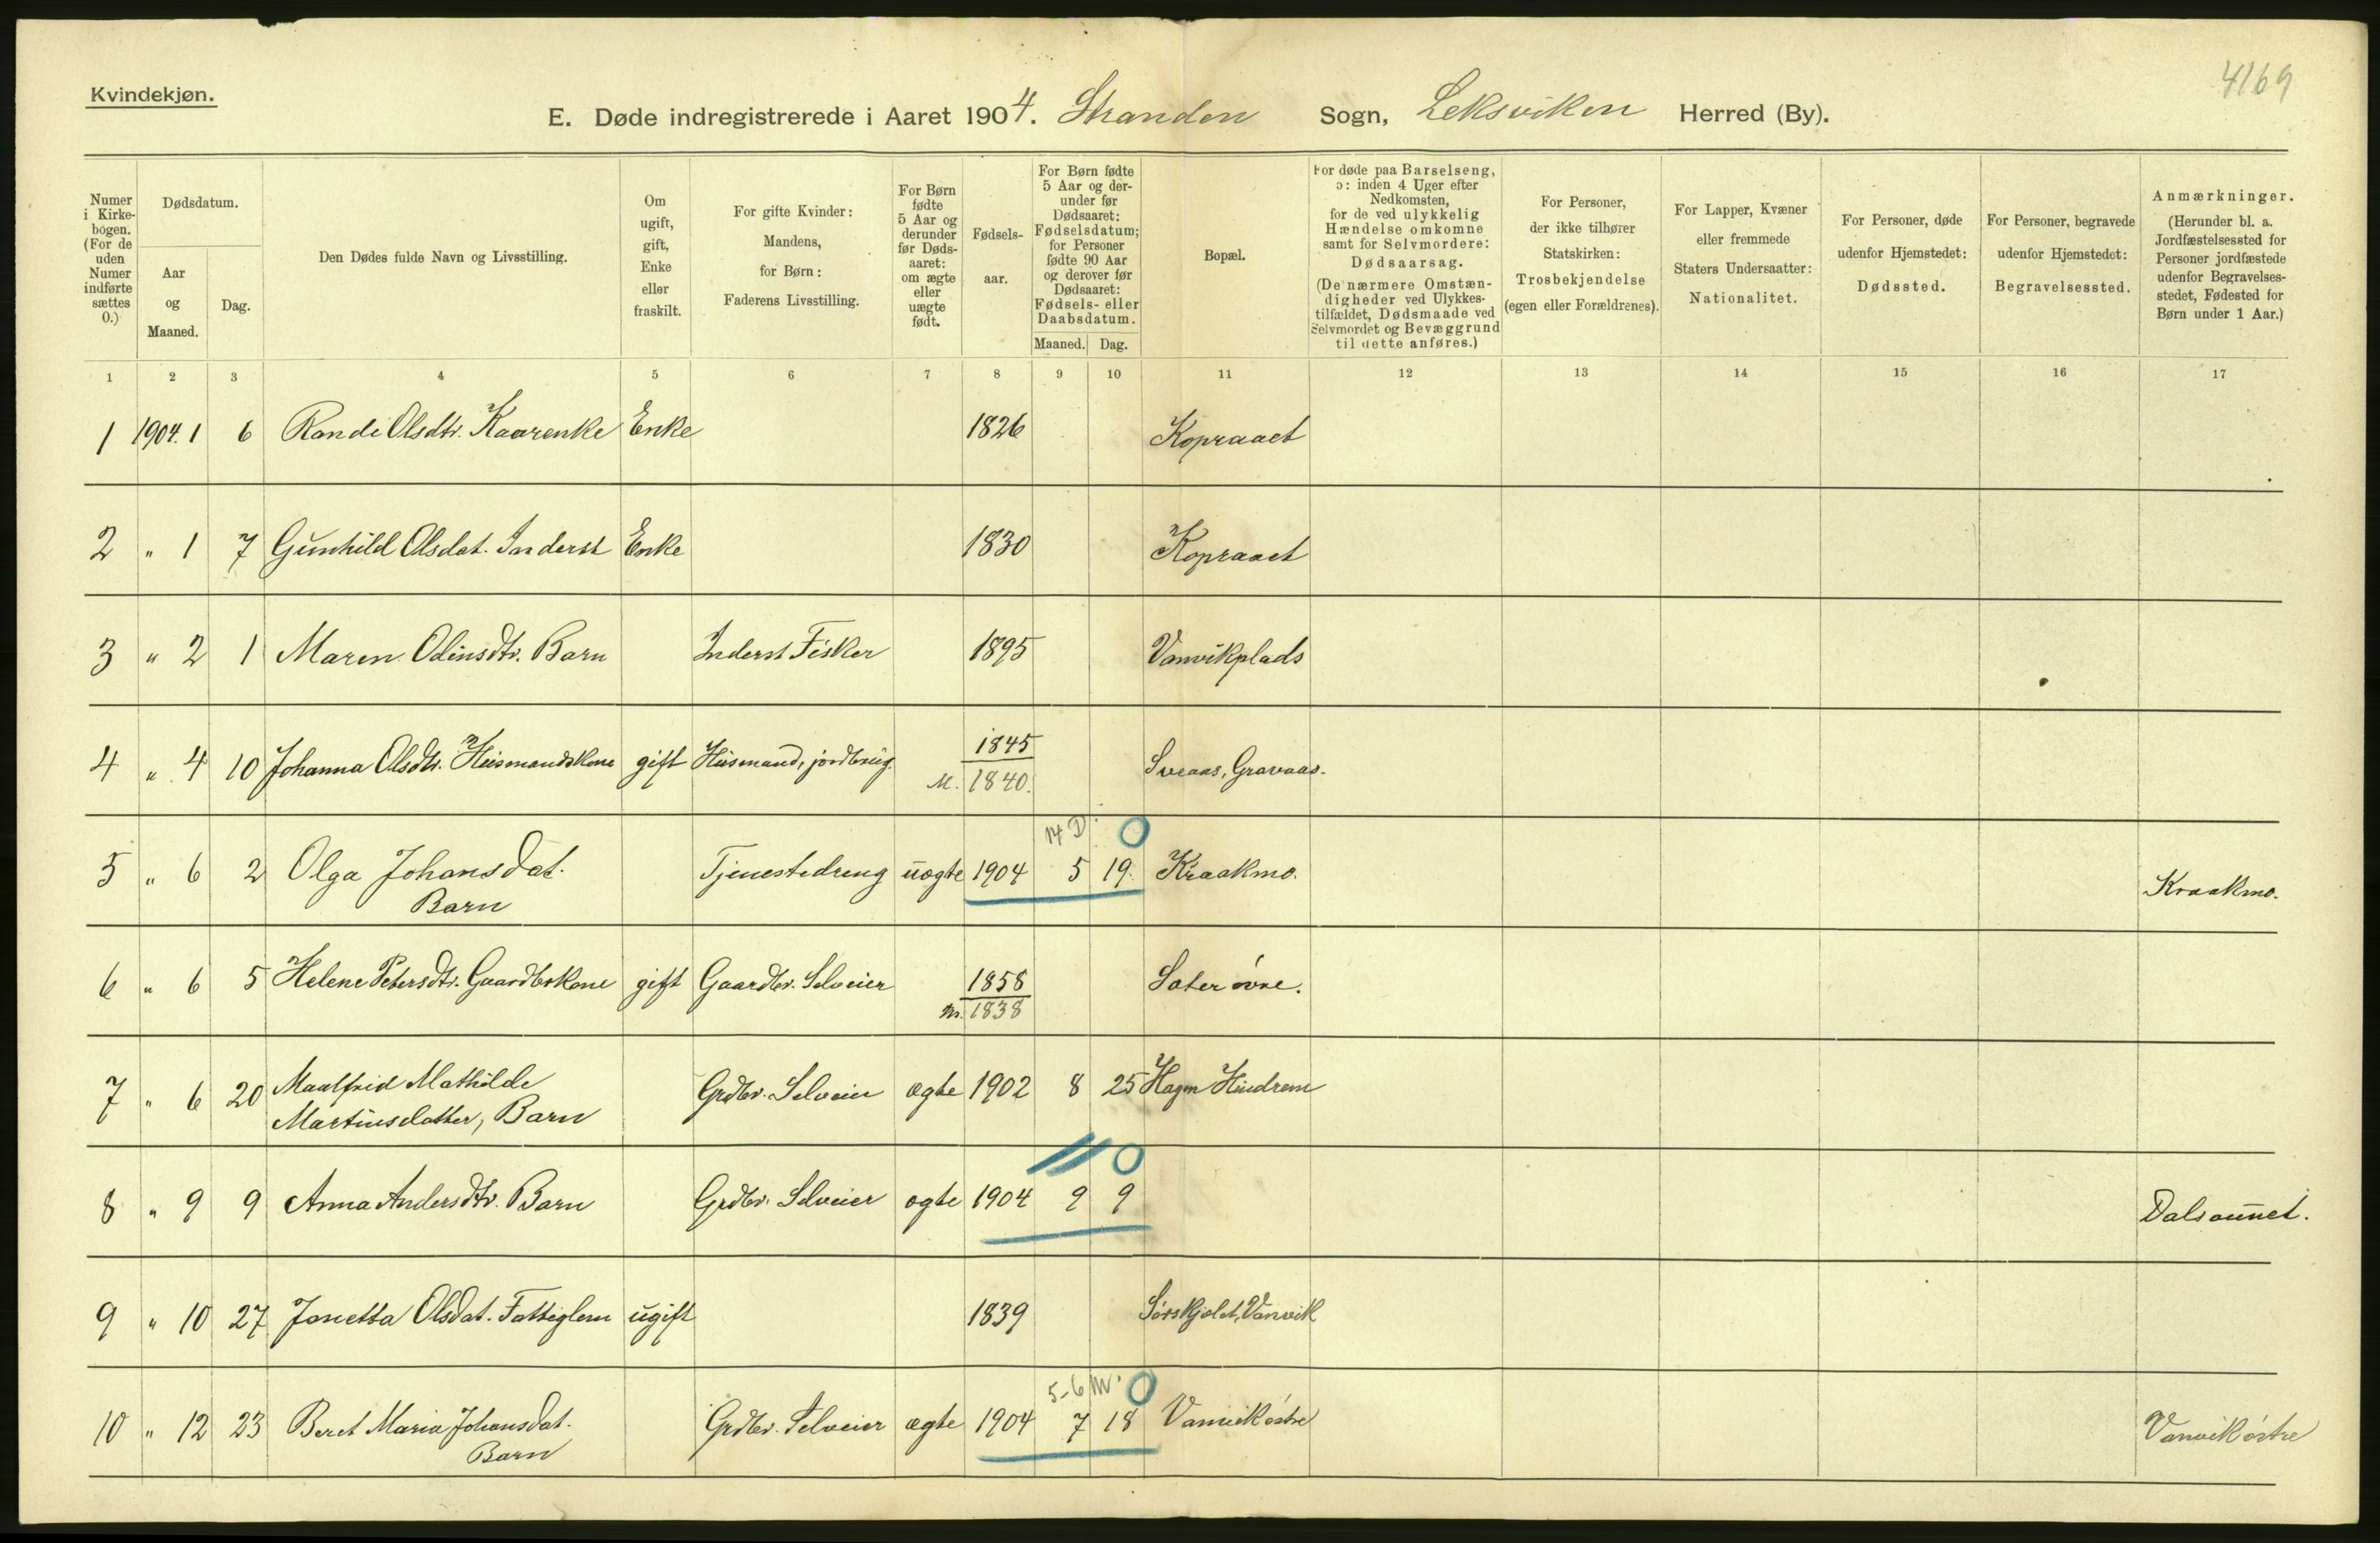 4169
Kvindekjøn.
E. Døde indregistrerede i Aaret 1904. Stranden Sogn, Leksviken Herred (By).
Numer i Kirkebogen. (For de uden Numer indførte sættes 0.)
Dødsdatum.
Aar og Maaned.
Dag.
Den Dødes fulde Navn og Livsstilling.
Om ugift, gift, Enke eller fraskilt.
For gifte Kvinder: Mandens, for Børn: Faderens Livsstilling.
For Børn fødte 5 Aar og derunder før Dødsaaret: om ægte eller uægte født.
Fødselsaar.
For Børn fødte 5 Aar og derunder før Dødsaaret: Fødselsdatum; for Personer fødte 90 Aar og derover før Dødsaaret: Fødsels- eller Daabsdatum.
Maaned. Dag.
Bopæl.
For døde paa Barselseng, ɔ: inden 4 Uger efter Nedkomsten, for de ved ulykkelig Hændelse omkomne samt for Selvmordere: Dødsaarsag.
(De nærmere Omstændigheder ved Ulykkestilfældet, Dødsmaade ved Selvmordet og Bevæggrund til dette anføres.)
For Personer, der ikke tilhører Statskirken: Trosbekjendelse (egen eller Forældrenes).
For Lapper, Kvæner eller fremmede Staters Undersaatter: Nationalitet.
For Personer, døde udenfor Hjemstedet: Dødssted.
For Personer, begravede udenfor Hjemstedet: Begravelsessted.
Anmærkninger. (Herunder bl. a. Jordfæstelsessted for Personer jordfæstede udenfor Begravelsesstedet, Fødested for Børn under 1 Aar.)
1 2 3 4 5 6 7 8 9 10 11 12 13 14 15 16 17
1 1904. 1 6 Randi Olsdtr. Kaarenke Enke 1826 Kopraaet
2 " 1 7 Gunhild Olsdat. Inderst Enke 1830 Kopraaet
3 " 2 1 Maren Odinsdtr. Barn Inderst Fisker 1895 Vanvikplads
4 " 4 10 Johanna Olsdtr. Husmandskone gift Husmand, jordbrug. 1845 Sveaas, Gravaas.
M. 1840.
14 D. 0
5 " 6 2 Olga Johansdat. Tjenestedreng uægte 1904 5 19. Kraakmo. Kraakmo.
Barn
6 " 6 5 Helene Petersdtr. Gaardbrkone gift Gaardbr. Selveier 1858 Sæter øvre.
M. 1838
7 " 6 20 Maalfrid Mathilde Grdbr. Selveier ægte 1902 8 25 Hagen Hindrem
Martinsdatter, Barn
0
8 " 9 9 Anna Andersdtr. Barn Grdbr. Selveier ægte 1904 9 9 Dalsaunet.
9 " 10 27 Jonetta Olsdat. Fattiglem ugift 1839 Sørskjølet, Vanvik
5-6 M. 0
10 " 12 23 Beret Maria Johansdat. Grdbr. Selveier ægte 1904 7 18 Vanvik østre Vanvik østre
Barn